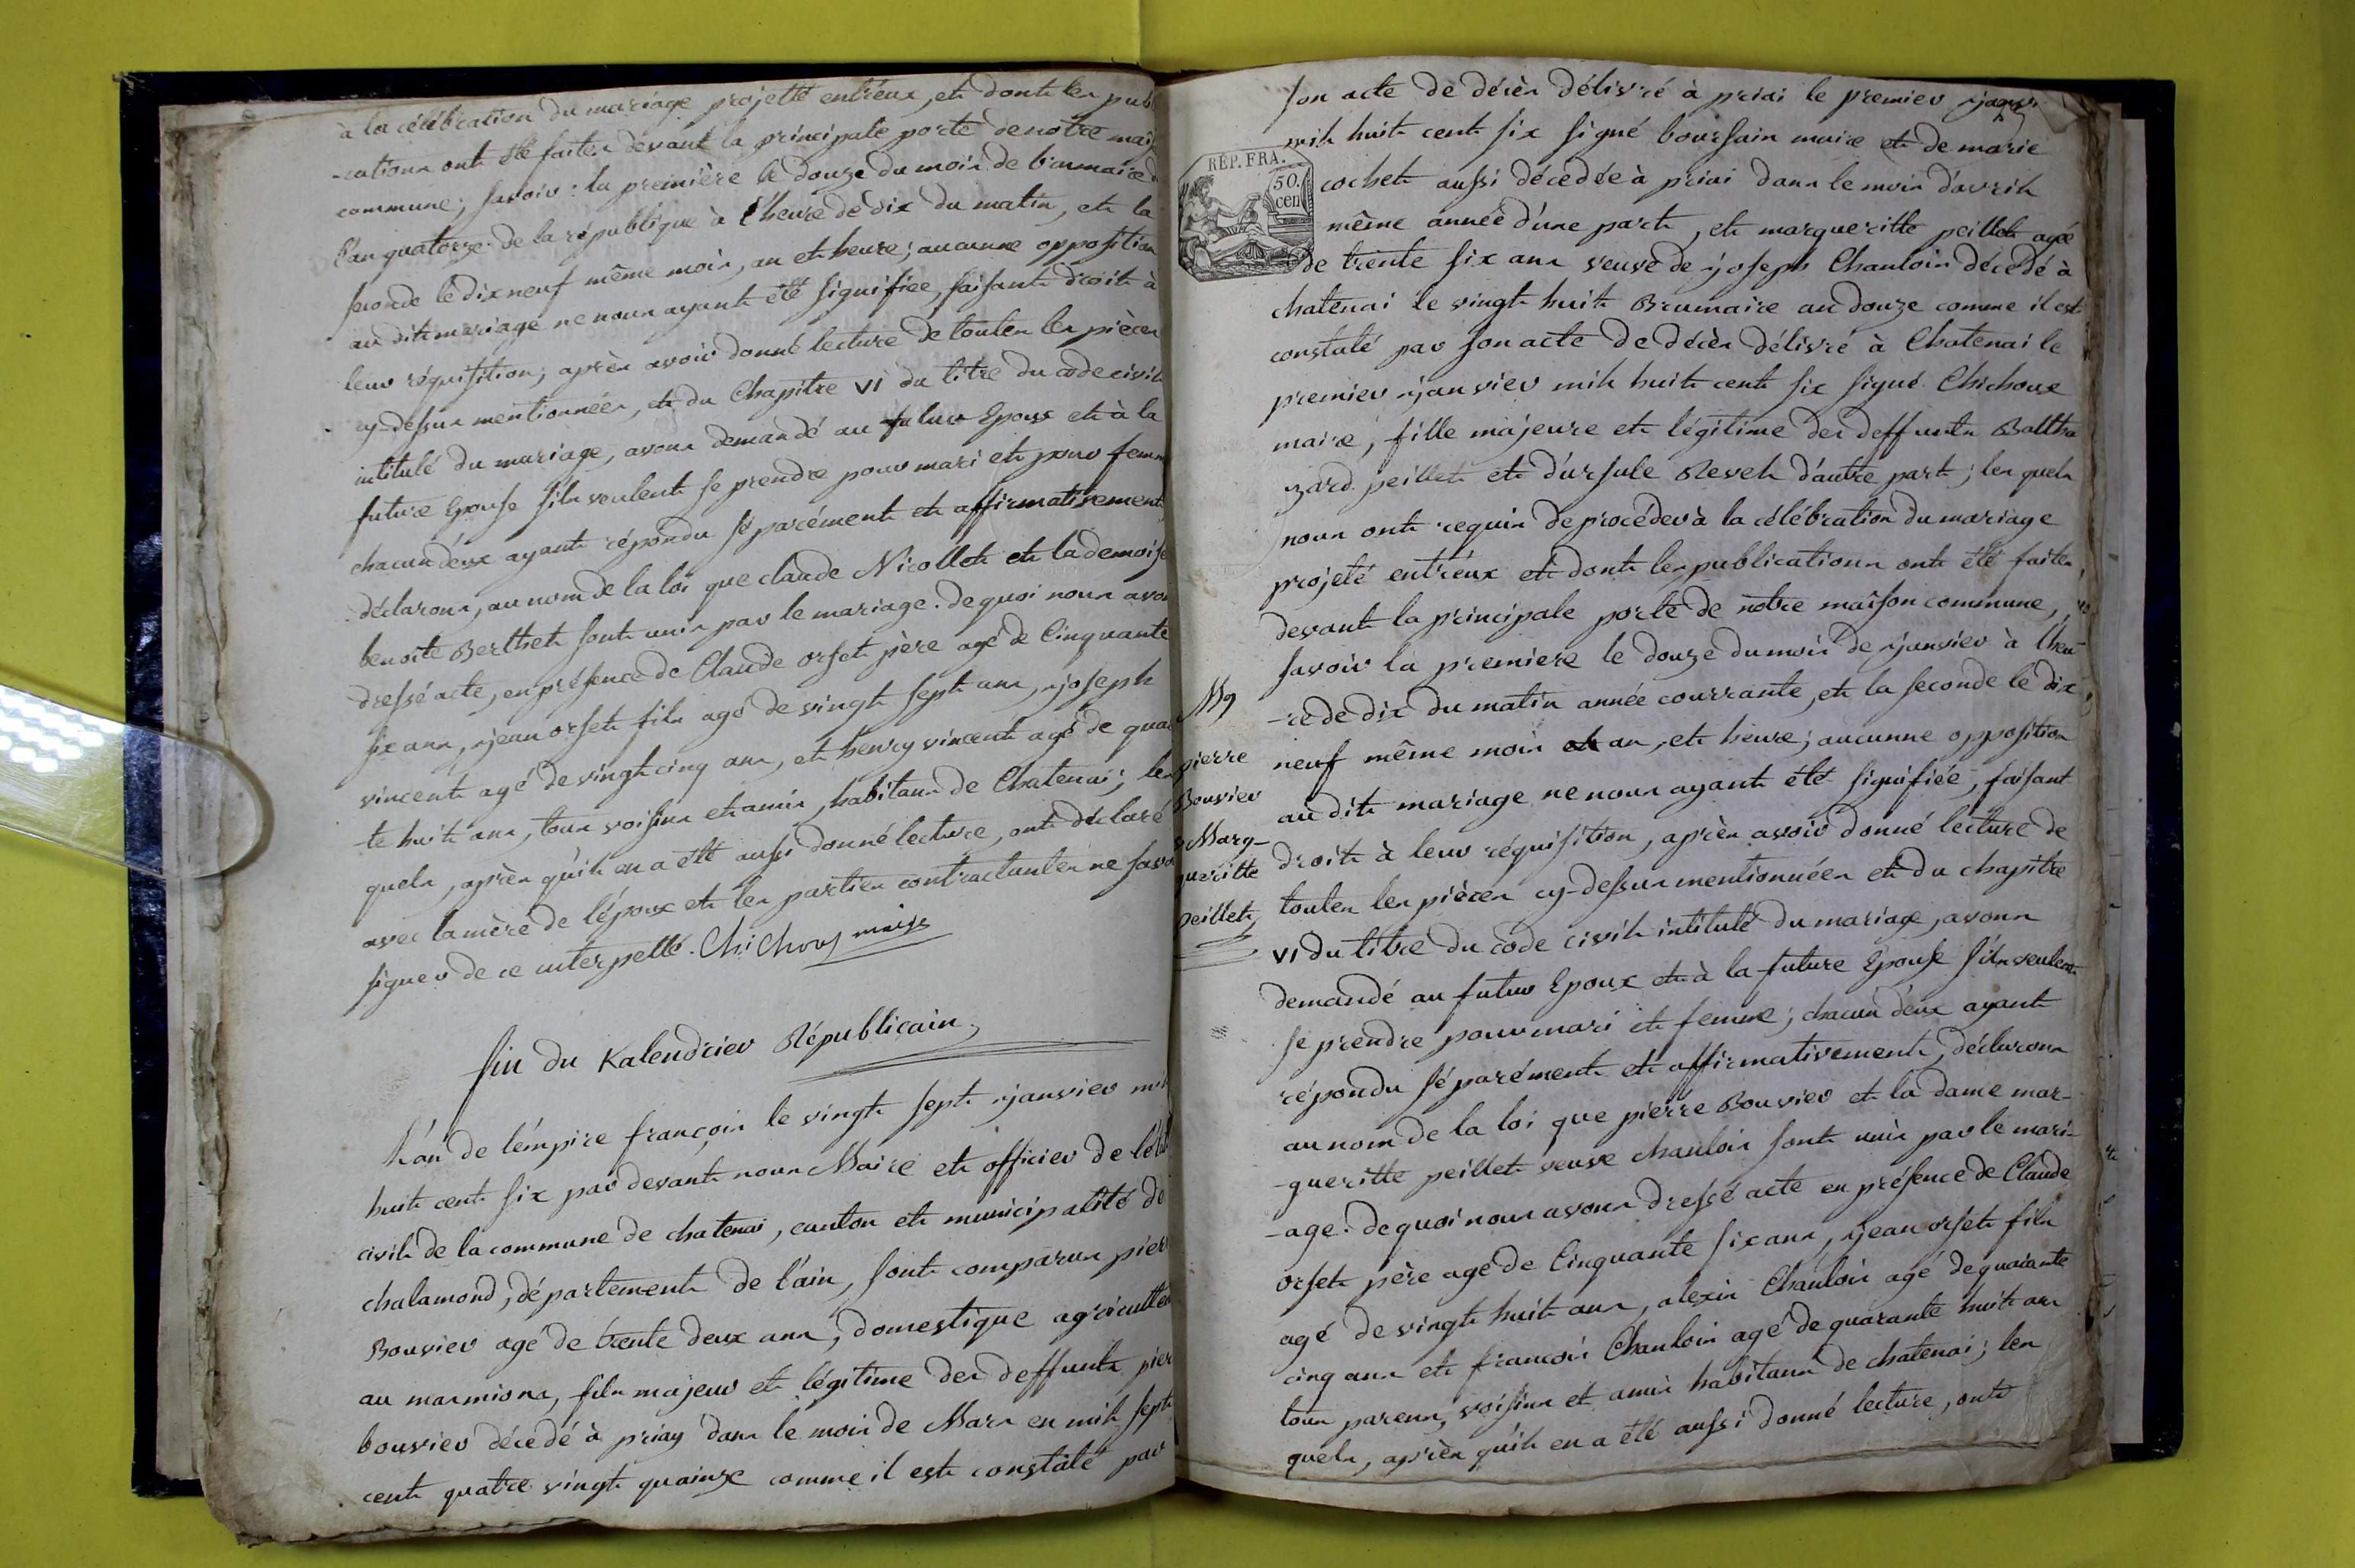 à la célébration du mariage projetté entr'eux, et dont les pub
-cations ont été faites devant la principale porte de notre mai
commune; savoir: la première le douze du mois de brumaire
l'an quatorze de la république à l'heure de dix du matin, et la
seconde le dix neuf même mois, an et heure; aucunne opposition
au dit mariage ne nous ayant été signifiée, faisant droit à
leur réquisition; après avoir donné lecture de toutes les pièces
cy-dessus mentionnées, et du Chapitre VI du titre du code civil
intitulé du mariage, avons demandé au futur Epoux et à la
future Epouse s'ils veulent se prendre pour mari et pour femm
chacun d'eux ayant répondu séparément et affirmativement
déclarons, au nom de la loi que claude Nicollet et la demoise
benoite Berthet sont unis par le mariage. de quoi nous avo
dressé acte, en présence de Claude orset père agé de Cinquante
six ans, jean orset fils agé de vingt sept ans, joseph
vincent agé de vingt cinq ans, et henry vincent agé de qua
-te huit ans, tous voisins et amis, habitans de Chatenai; les
quels, après qu'il en a été aussi donné lecture, ont déclaré
avec la mère de l'époux et les parties contractantes ne savo
signer de ce interpellé. Chichoux maire
fin du Kalendrier Républicain.
L'an de l'empire françois le vingt sept janvier mil
huit cent six par devant nous Maire et officier de l'éta
civil de la commune de chatenai, canton et municipalité de
chalamond, département de l'ain, sont comparus pier
Bouvier agé de trente deux ans, domestique agriculteu
au marmions, fils majeur et légitime des deffunts pier
bouvier décédé à priay dans le mois de Mars en mil sept
cent quatre vingt quainze comme il est constaté par
son acte de décès délivré à priai le premier janvr
mil huit cent six signé boursain maire et de marie
RÉP. FRA.
50.
cen
cochet aussi décédée à priai dans le mois d'avril
même année d'une part, et margueritte peillet agée
de trente six ans veuve de joseph Chanloin décédé à
chatenai le vingt huit Brumaire an douze comme il est
constaté par son acte de décès délivré à Chatenai le
premier janvier mil huit cent six signé Chichoux
maire, fille majeure et légitime des deffunts Baltha
zard peillet et d'ursule Revel d'autre part; les quels
nous ont requis de procéder à la célébration du mariage
projeté entr'eux et dont les publications ont été faites
devant la principale porte de notre maison commune,
savoir la premiere le douze du mois de janvier à l'heu-
-re de dix du matin année courrante, et la seconde le dix
neuf même mois an et heure; aucunne opposition
au dit mariage ne nous ayant été signifiée, faisant
droit à leur réquisition, après avoir donné lecture de
toutes les pièces cy-dessus mentionnées et du chapitre
VI du titre du code civil intitulé du mariage, avons
demandé au futur Epoux et à la future Epouse s'ils veulent
se prendre pour mari et femme; chacun d'eux ayant
répondu séparément et affirmativement, déclarons
au nom de la loi que pierre Bouvier et la dame mar-
-gueritte peillet veuve chanloin sont unis par le mari-
-age. de quoi nous avons dressé acte en présence de Claude
orset père agé de Cinquante six ans, jean orset fils
agé de vingt huit ans, alexis Chanloin agé de quarante
cinq ans et francois Chanloin agé de quarante huit ans
tous parens, voisins et amis habitans de chatenai; les
quels, après qu'il en a été aussi donné lecture, ont
Mg
pierre
Bouvier
Marg-
ueritte
peillet